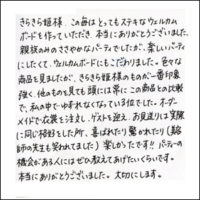 きらきら姫様、この毎はとってもステキなウェルカム
ボードを作っていただき、本当にありがとうございました。
親族のみのささやかなパーティでしたが、楽しいパーティ
にしたくて、ウェルカムボードにもこだわりました。色々な
商品を見ましたが、きらきら姫様のものが一番印象
強く、他のものを見ても頭には常にこの商品との比較
で、私の中でゆずれなくなっていた程でした。オーダー
メイドで衣裳を注文し、ゲストを迎え、お見送りは実際
に同じ格好をした所、喜ばれたり驚かれたり(
の先生も笑われました) 楽しかったです!! パーティーの
機会がある人にはぜひ教えてあげたいくらいです。
本当にありがとうございました。大切にします。